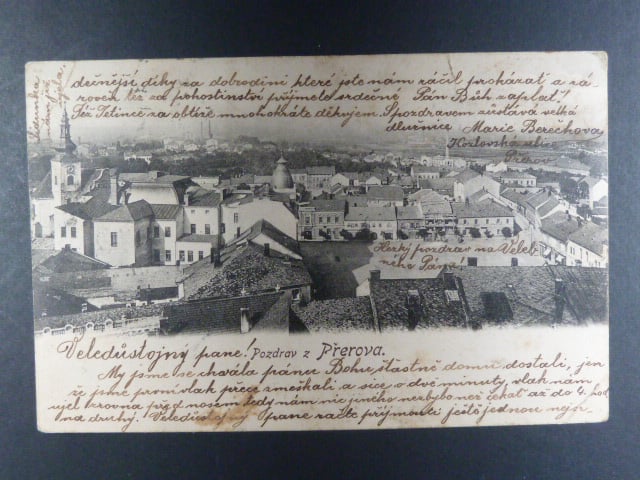 dečnější díky za dobrodiní které jste nám ráčil prokázat a zá-
roveň též za pohostinství přijměte srdečné Pán Bůh zaplať!
Též Tetince za obtíže mnohokráte děkujem. S pozdravem zůstává velká
dlužnice Marie Berechova
Kozlovská ulice
Přerov
Hezký pozdrav na Veleb
ného Pána
Veledůstojný pane! Pozdrav z Přerova.
My jsme se chvála pánu Bohu šťastně domů dostali, jen
že jsme první vlak přece zmeškali a sice o dvě minuty, vlak nám
ujel zrovna před nosem tedy nám nic jiného nezbylo než čekat až do 4 hod
na druhý. Veledůstojný pane račte přijmouti ještě jednou nejs-